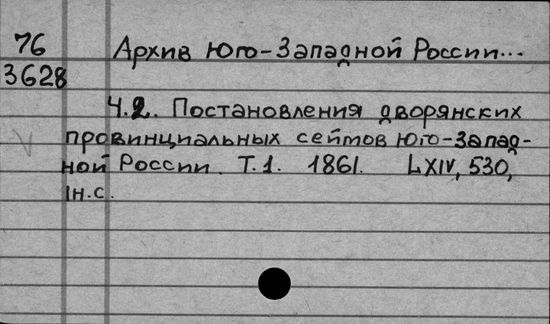 76 Архив Юго-Западной России...
3628
Ч.2. Постановления дворянских
провинциальных сеймов Юго-Запад-
ной России. Т.1. 1861. LXIV, 530,
1н.с.